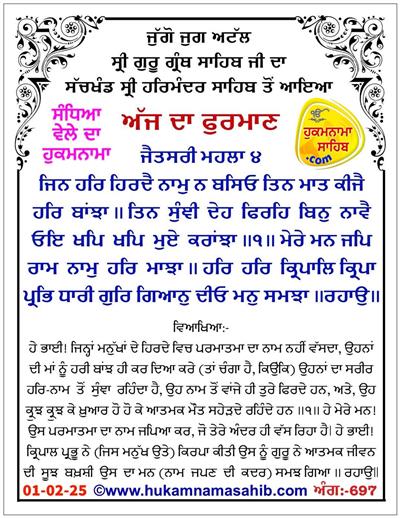 ਜੁੱਗੋ ਜੁਗ ਅਟੱਲ
ਸ੍ਰੀ ਗੁਰੂ ਗ੍ਰੰਥ ਸਾਹਿਬ ਜੀ ਦਾ
ਸੱਚਖੰਡ ਸ੍ਰੀ ਹਰਿਮੰਦਰ ਸਾਹਿਬ ਤੋਂ ਆਇਆ
ਸੰਧਿਆ
ਵੇਲੇ ਦਾ
ਹੁਕਮਨਾਮਾ
ਅੱਜ ਦਾ ਫੁਰਮਾਣ
ੴ
ਹੁਕਮਨਾਮਾ
ਸਾਹਿਬ
.com
ਜੈਤਸਰੀ ਮਹਲਾ ੪
ਜਿਨ ਹਰਿ ਹਿਰਦੈ ਨਾਮੁ ਨ ਬਸਿਓ ਤਿਨ ਮਾਤ ਕੀਜੈ
ਹਰਿ ਬਾਂਝਾ ॥ ਤਿਨ ਸੁੰਞੀ ਦੇਹ ਫਿਰਹਿ ਬਿਨੁ ਨਾਵੈ
ਓਇ ਖਪਿ ਖਪਿ ਮੁਏ ਕਰਾਂਝਾ ॥੧॥ ਮੇਰੇ ਮਨ ਜਪਿ
ਰਾਮ ਨਾਮੁ ਹਰਿ ਮਾਝਾ ॥ ਹਰਿ ਹਰਿ ਕ੍ਰਿਪਾਲਿ ਕ੍ਰਿਪਾ
ਪ੍ਰਭਿ ਧਾਰੀ ਗੁਰਿ ਗਿਆਨੁ ਦੀਓ ਮਨੁ ਸਮਝਾ ॥ਰਹਾਉ॥
ਵਿਆਖਿਆ:-
ਹੇ ਭਾਈ! ਜਿਨ੍ਹਾਂ ਮਨੁੱਖਾਂ ਦੇ ਹਿਰਦੇ ਵਿਚ ਪਰਮਾਤਮਾ ਦਾ ਨਾਮ ਨਹੀਂ ਵੱਸਦਾ, ਉਹਨਾਂ
ਦੀ ਮਾਂ ਨੂੰ ਹਰੀ ਬਾਂਝ ਹੀ ਕਰ ਦਿਆ ਕਰੇ (ਤਾਂ ਚੰਗਾ ਹੈ, ਕਿਉਂਕਿ) ਉਹਨਾਂ ਦਾ ਸਰੀਰ
ਹਰਿ-ਨਾਮ ਤੋਂ ਸੁੰਞਾ ਰਹਿੰਦਾ ਹੈ, ਉਹ ਨਾਮ ਤੋਂ ਵਾਂਜੇ ਹੀ ਤੁਰੇ ਫਿਰਦੇ ਹਨ, ਅਤੇ, ਉਹ
ਕ੍ਰੁਝ ਕ੍ਰੁਝ ਕੇ ਖ਼ੁਆਰ ਹੋ ਹੋ ਕੇ ਆਤਮਕ ਮੌਤ ਸਹੇੜਦੇ ਰਹਿੰਦੇ ਹਨ ॥੧॥ ਹੇ ਮੇਰੇ ਮਨ!
ਉਸ ਪਰਮਾਤਮਾ ਦਾ ਨਾਮ ਜਪਿਆ ਕਰ, ਜੋ ਤੇਰੇ ਅੰਦਰ ਹੀ ਵੱਸ ਰਿਹਾ ਹੈ। ਹੇ ਭਾਈ!
ਕ੍ਰਿਪਾਲ ਪ੍ਰਭੂ ਨੇ (ਜਿਸ ਮਨੁੱਖ ਉਤੇ) ਕਿਰਪਾ ਕੀਤੀ ਉਸ ਨੂੰ ਗੁਰੂ ਨੇ ਆਤਮਕ ਜੀਵਨ
ਦੀ ਸੂਝ ਬਖ਼ਸ਼ੀ ਉਸ ਦਾ ਮਨ (ਨਾਮ ਜਪਣ ਦੀ ਕਦਰ) ਸਮਝ ਗਿਆ ॥ ਰਹਾਉ॥
01-02-25 ©www.hukamnamasahib.com ਅੰਗ:-697